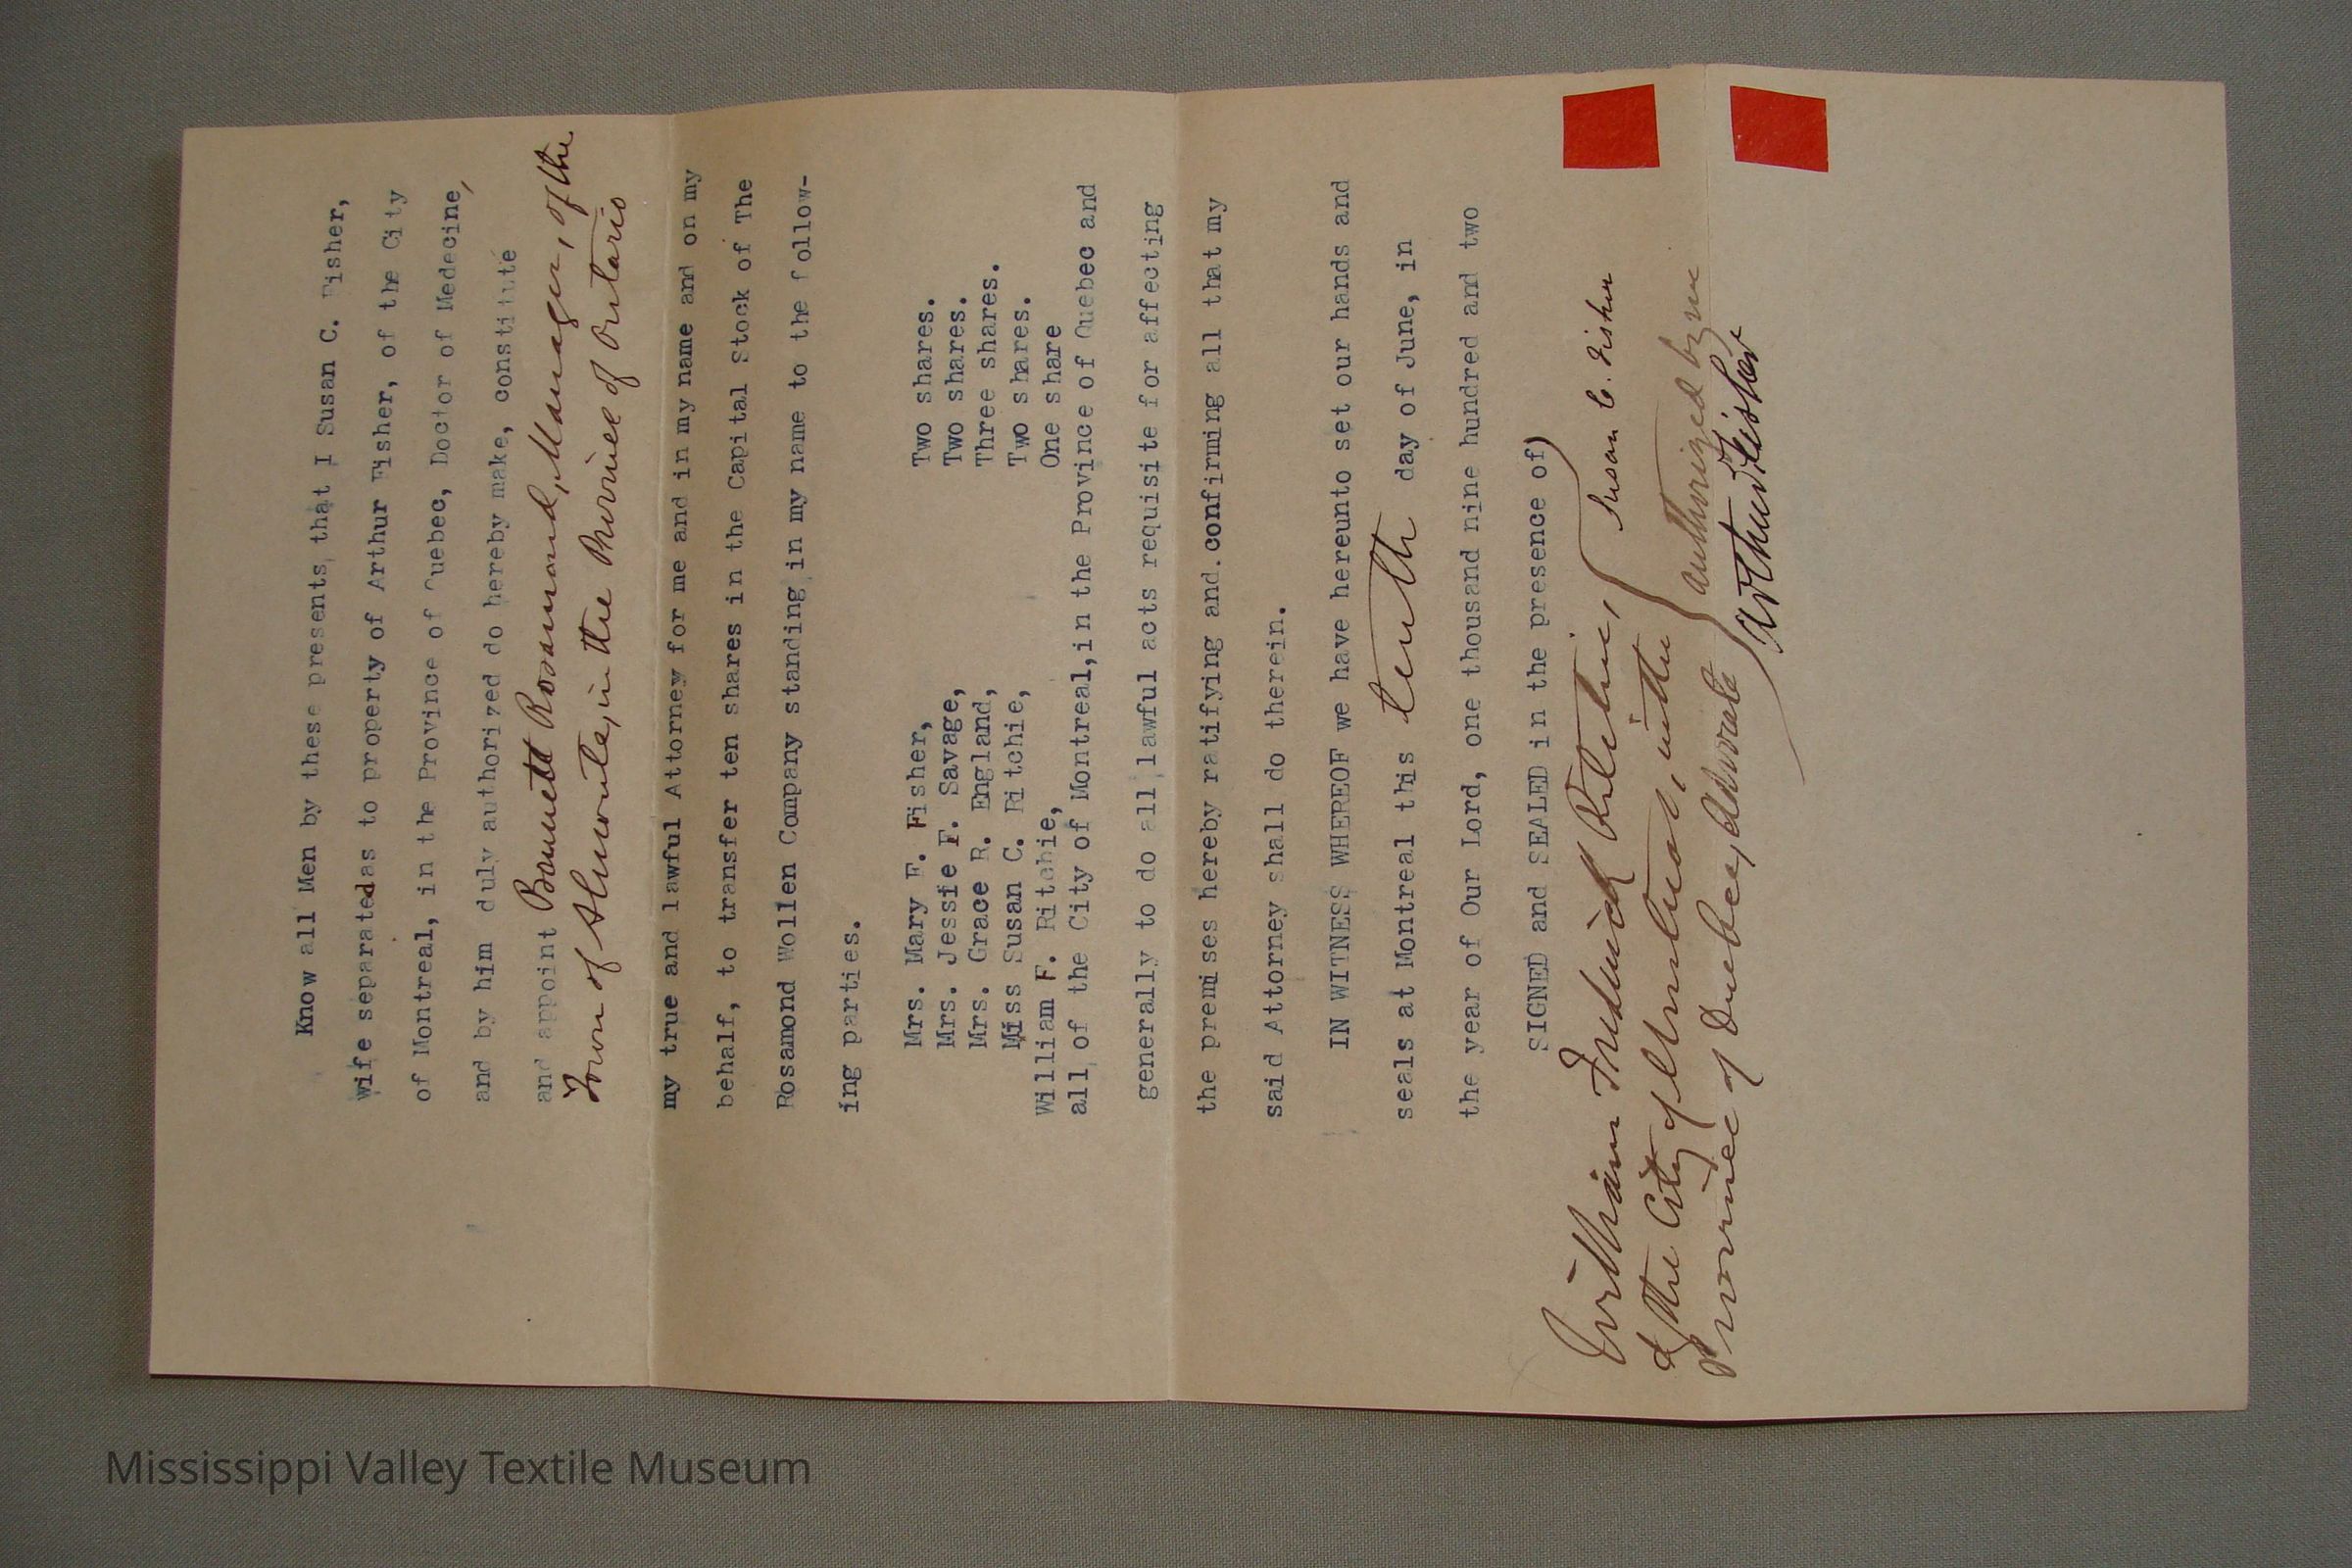 Know all Men by these presents that I Susan C. Fisher,
wife separatedas to property of Arthur Fisher, of the City
of Montreal, in the Province of Quebec, Doctor of Medecine,
and by him duly authorized do hereby make, constitute
and appoint Bennett Rosamond, Manager, of the
Town of Almonte, in the Province of Ontario
my true and lawful Attorney for me and in my name and on my
behalf, to transfer ten shares in the Capital Stock of The
Rosamond Wollen Company standing in my name to the follow-
ing parties.
Mrs. Mary F. Fisher, Two shares.
Mrs. Jessie F. Savage, Two shares.
Mrs. Grace R. England, Three shares.
Miss Susan C. Ritchie, Two shares.
William F. Ritchie, One share
all of the City of Montreal,in the Province of Quebec and
generally to do all lawful acts requisite for affecting
the premises hereby ratifying and.confirming all that my
said Attorney shall do therein.
IN WITNESS WHEREOF we have hereunto set our hands and
seals at Montreal this tenth day of June, in
the year of Our Lord, one thousand nine hundred and two
SIGNED and SEALED in the presence of)
William Frederick Ritchie, Susan C. Fisher
of the City of Montreal, in the authorized by me
Province of Quebec, Advocate Arthur Fisher
Mississippi Valley Textile Museum